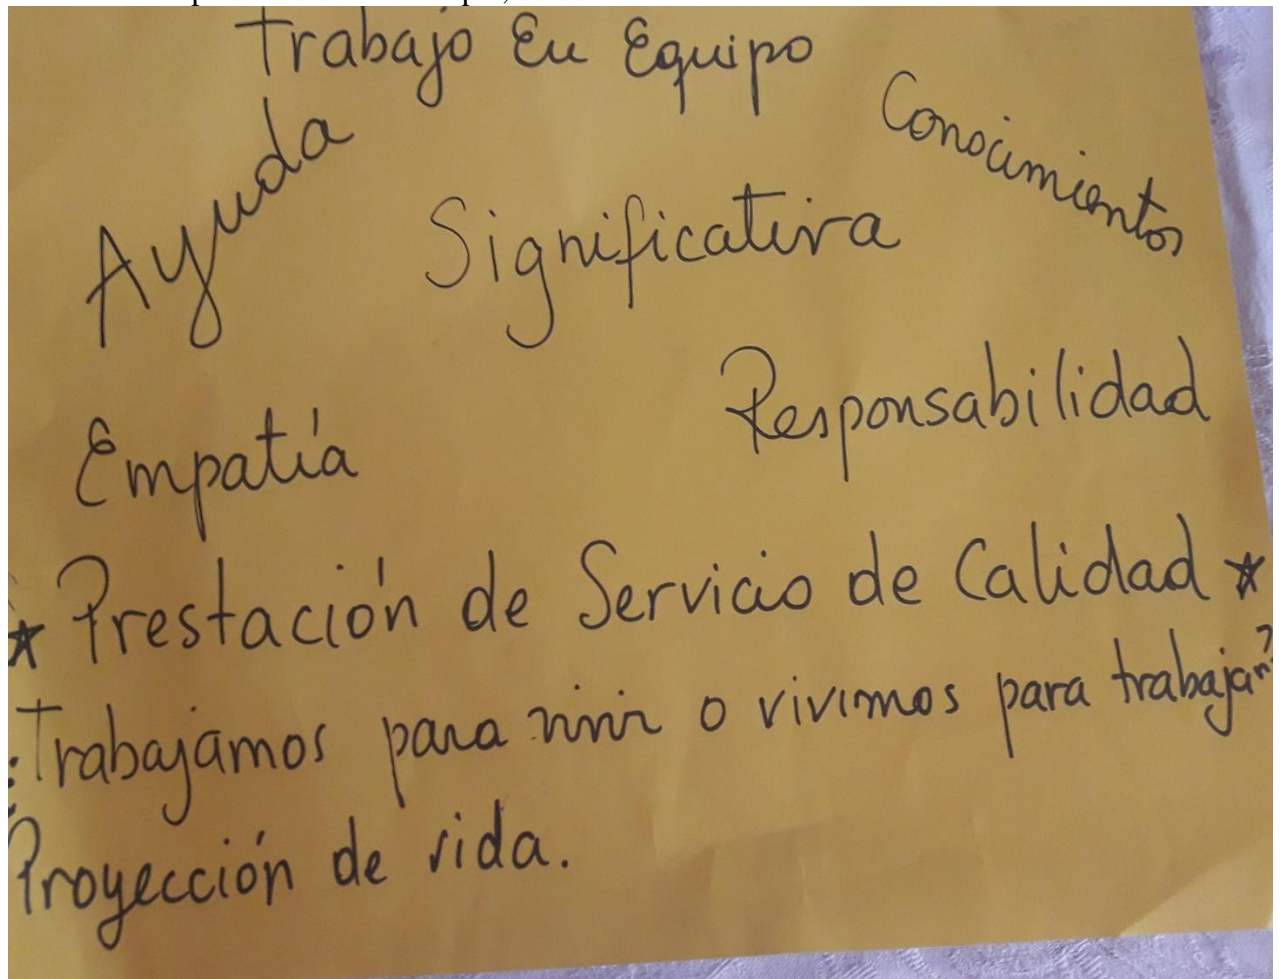 Trabajo En Equipo
Ayuda
Conocimientos
Significativa
Responsabilidad
Empatía
* Prestación de Servicio de Calidad *
¿Trabajamos para vivir o vivimos para trabajar?
Proyección de vida.